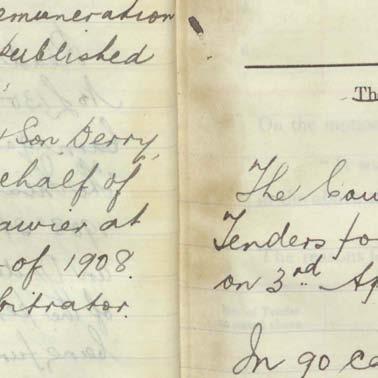 emuneration
published
& Son. Derry,
ehalf of
awier at
of 1908.
bitrator.
Th
The Cou
Tenders fo
on 3rd Ap
In 90 ca